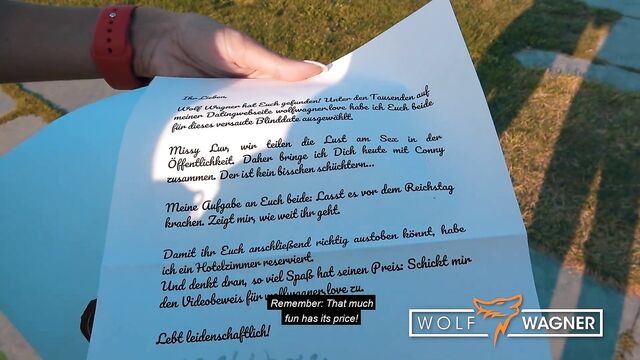 Ihr Lieben,
Wolf Wagner hat Euch gefunden! Unter den Tausenden auf
meiner Datingwebseite wolfwagner.love habe ich Euch beide
für dieses versaute Blinddate ausgewählt.
Missy Luv, wir teilen die Lust am Sex in der
Öffentlichkeit. Daher bringe ich Dich heute mit Conny
zusammen. Der ist kein bisschen schüchtern...
Meine Aufgabe an Euch beide: Lasst es vor dem Reichstag
krachen. Zeigt mir, wie weit ihr geht.
Damit ihr Euch anschließend richtig austoben könnt, habe
ich ein Hotelzimmer reserviert.
Und denkt dran, so viel Spaß hat seinen Preis: Schickt mir
den Videobeweis für wolfwagner.love zu.
Remember: That much
fun has its price!
Lebt leidenschaftlich!
WOLF WAGNER